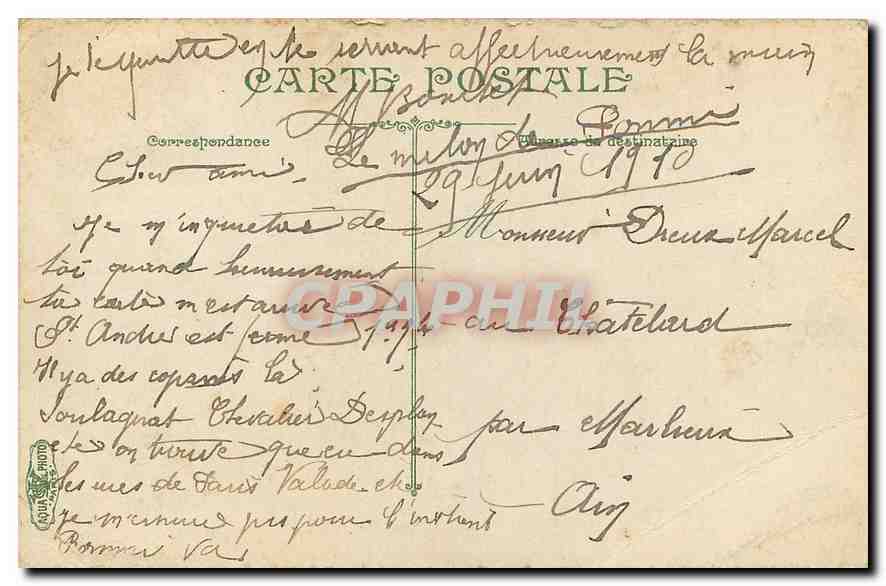 je te quitte en te serrant affectueusement la main
CARTE POSTALE
M Bouchet
Correspondance
Adresse du destinataire
Le melon de Pommié
29 Juin 1910
Cher ami
Je m'inquietais de
toi quand heureusement
ta carte m'est arrivée
St. André est fermé
Il y a des copains la
Soulagnat Chevalier Desplay
etc on trouve que ça dans
les rues de Paris Valade et
je m'ennuie pas pour l'instant
Pommié va
Monsieur Dreux Marcel
au Châtelard
par Marlieux
Ain
AQUA PHOTO
PARIS
CPAPHIL